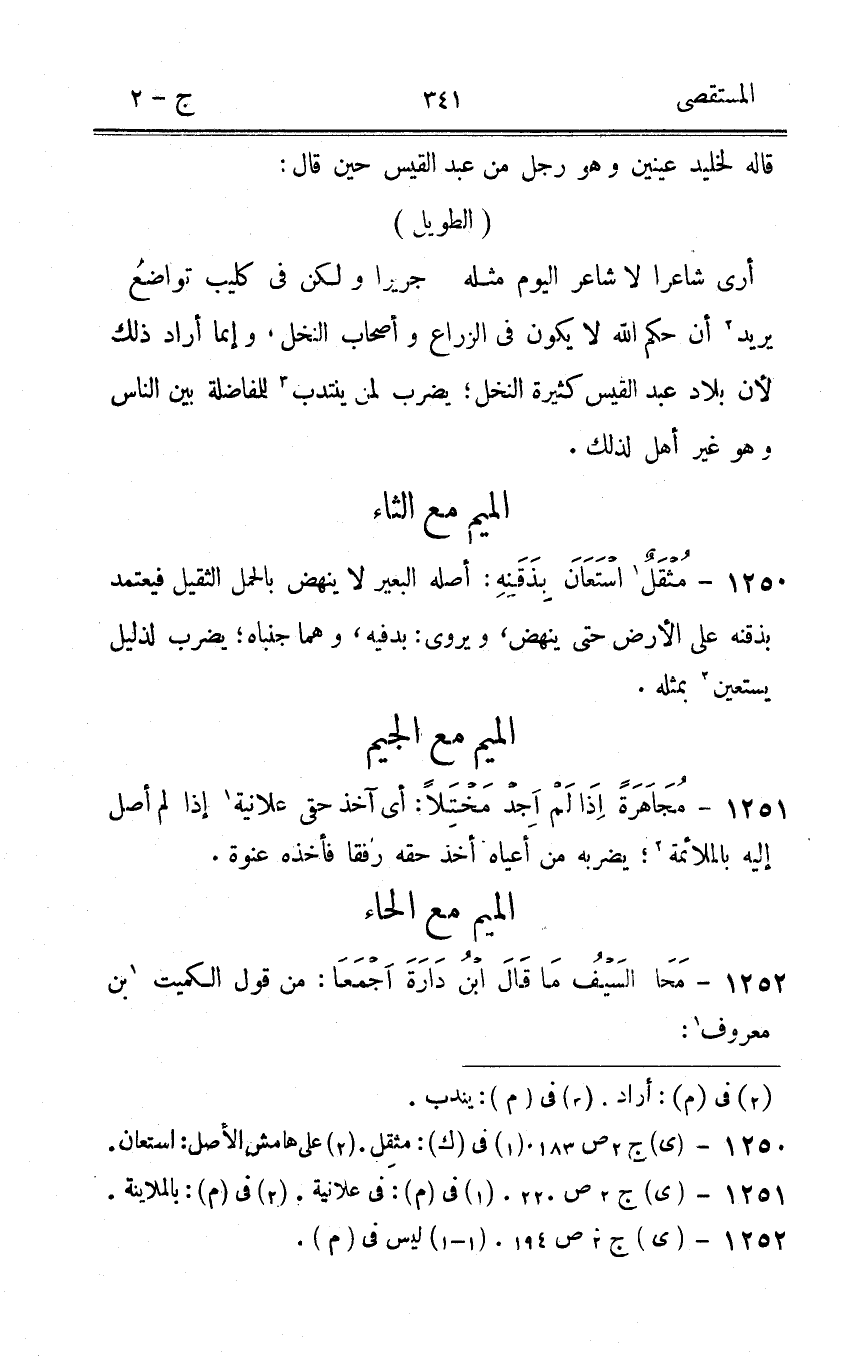 المستقصى ٣٤١ ج – ٢
قاله لخليد عينين و هو رجل من عبد القيس حين قال :
( الطويل )
أرى شاعرا لا شاعر اليوم مثـله جريرا و لـكن فى كليب تواضعُ
يريد٢ أن حكم الله لا يكون فى الزراع و أصحاب النخل، و إنما أراد ذلك
لأن بلاد عبد القيس كثيرة النخل؛ يضرب لمن ينتدب٣ للفاضلة بين الناس
و هو غير أهل لذلك .
الميم مع الثاء
١٢٥٠ – مُثْقَلٌ١ اسْتَعَانَ بِذَقَنِهِ : أصله البعير لا ينهض بالحمل الثقيل فيعتمد
بذقنه على الأرض حتى ينهض، و يروى : بدفيه، و هما جنباه؛ يضرب لذليل
يستعين٢ بمثله .
الميم مع الجيم
١٢٥١ – مُجَاهَرَةً إِذَا لَمْ اَجِدْ مَخْتَلاً : أى آخذ حقى علانية١ إذا لم أصل
إليه بالملائمة٢ ؛ يضربه من أعياه أخذ حقه رفقا فأخذه عنوة .
الميم مع الحاء
١٢٥٢ – مَحَا السَيْفُ مَا قَالَ ابْنُ دَارَةَ اَجْمَعَا : من قول الـكميت ١بن
معروف١ :
(٢) فى (م) : أراد . (٣) فى ( م ) : يندب .
١٢٥٠ – (ى) ج ٢ ص ١٨٣ .(١) فى (ك) : مثقِل .(٢) على هامش الأصل : استعان .
١٢٥١ – ( ى ) ج ٢ ص ٢٢٠ . (١) فى (م) : فى علانية . (٢) فى (م) : بالملاينة .
١٢٥٢ – ( ى ) ج ٢ ص ١٩٤ . (١–١) ليس فى ( م ) .